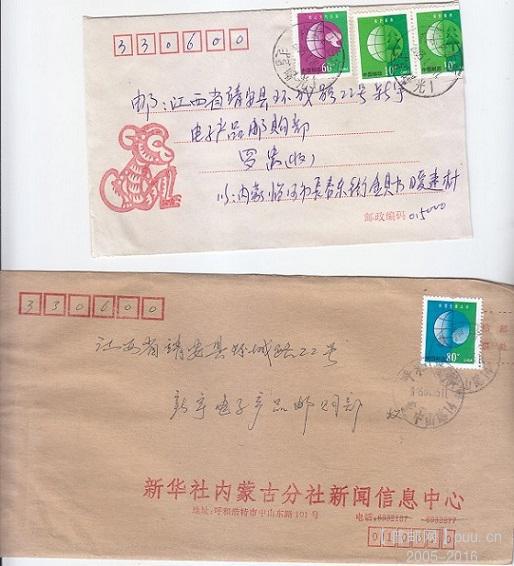 330600
中国邮政 60分
中国邮政 10分
中国邮政 10分
邮:江西省靖安县环城路22号新宇
电子产品邮购部
罗 (收)
内蒙临河市长春东街金具书暖建材
邮政编码 015000
330600
80分
江西省靖安县环城路22号
新宇电子产品邮购部
收
中山路
新华社内蒙古分社新闻信息中心
地址:呼和浩特市中山东路101号
电话:6932187 6932877
puu.cn
2005-2016